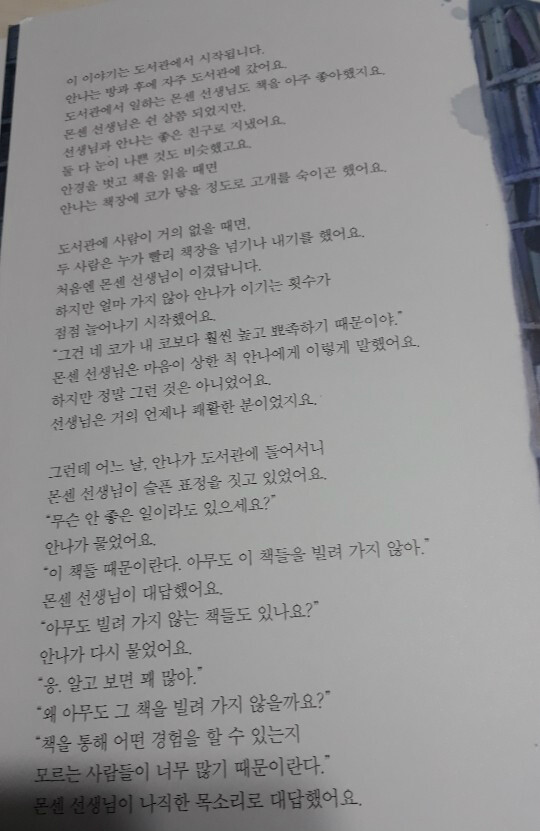 이 이야기는 도서관에서 시작됩니다.
안나는 방과 후에 자주 도서관에 갔어요.
도서관에서 일하는 몬센 선생님도 책을 아주 좋아했지요.
몬센 선생님은 쉰 살쯤 되었지만,
선생님과 안나는 좋은 친구로 지냈어요.
둘 다 눈이 나쁜 것도 비슷했고요.
안경을 벗고 책을 읽을 때면
안나는 책장에 코가 닿을 정도로 고개를 숙이곤 했어요.
도서관에 사람이 거의 없을 때면,
두 사람은 누가 빨리 책장을 넘기나 내기를 했어요.
처음엔 몬센 선생님이 이겼답니다.
하지만 얼마 가지 않아 안나가 이기는 횟수가
점점 늘어나기 시작했어요.
“그건 네 코가 내 코보다 훨씬 높고 뾰족하기 때문이야.”
몬센 선생님은 마음이 상한 척 안나에게 이렇게 말했어요.
하지만 정말 그런 것은 아니었어요.
선생님은 거의 언제나 쾌활한 분이었지요.
그런데 어느 날, 안나가 도서관에 들어서니
몬센 선생님이 슬픈 표정을 짓고 있었어요.
“무슨 안 좋은 일이라도 있으세요?”
안나가 물었어요.
“이 책들 때문이란다. 아무도 이 책들을 빌려 가지 않아.”
몬센 선생님이 대답했어요.
“아무도 빌려 가지 않는 책들도 있나요?”
안나가 다시 물었어요.
“응. 알고 보면 꽤 많아.”
“왜 아무도 그 책을 빌려 가지 않을까요?”
“책을 통해 어떤 경험을 할 수 있는지
모르는 사람들이 너무 많기 때문이란다.”
몬센 선생님이 나직한 목소리로 대답했어요.